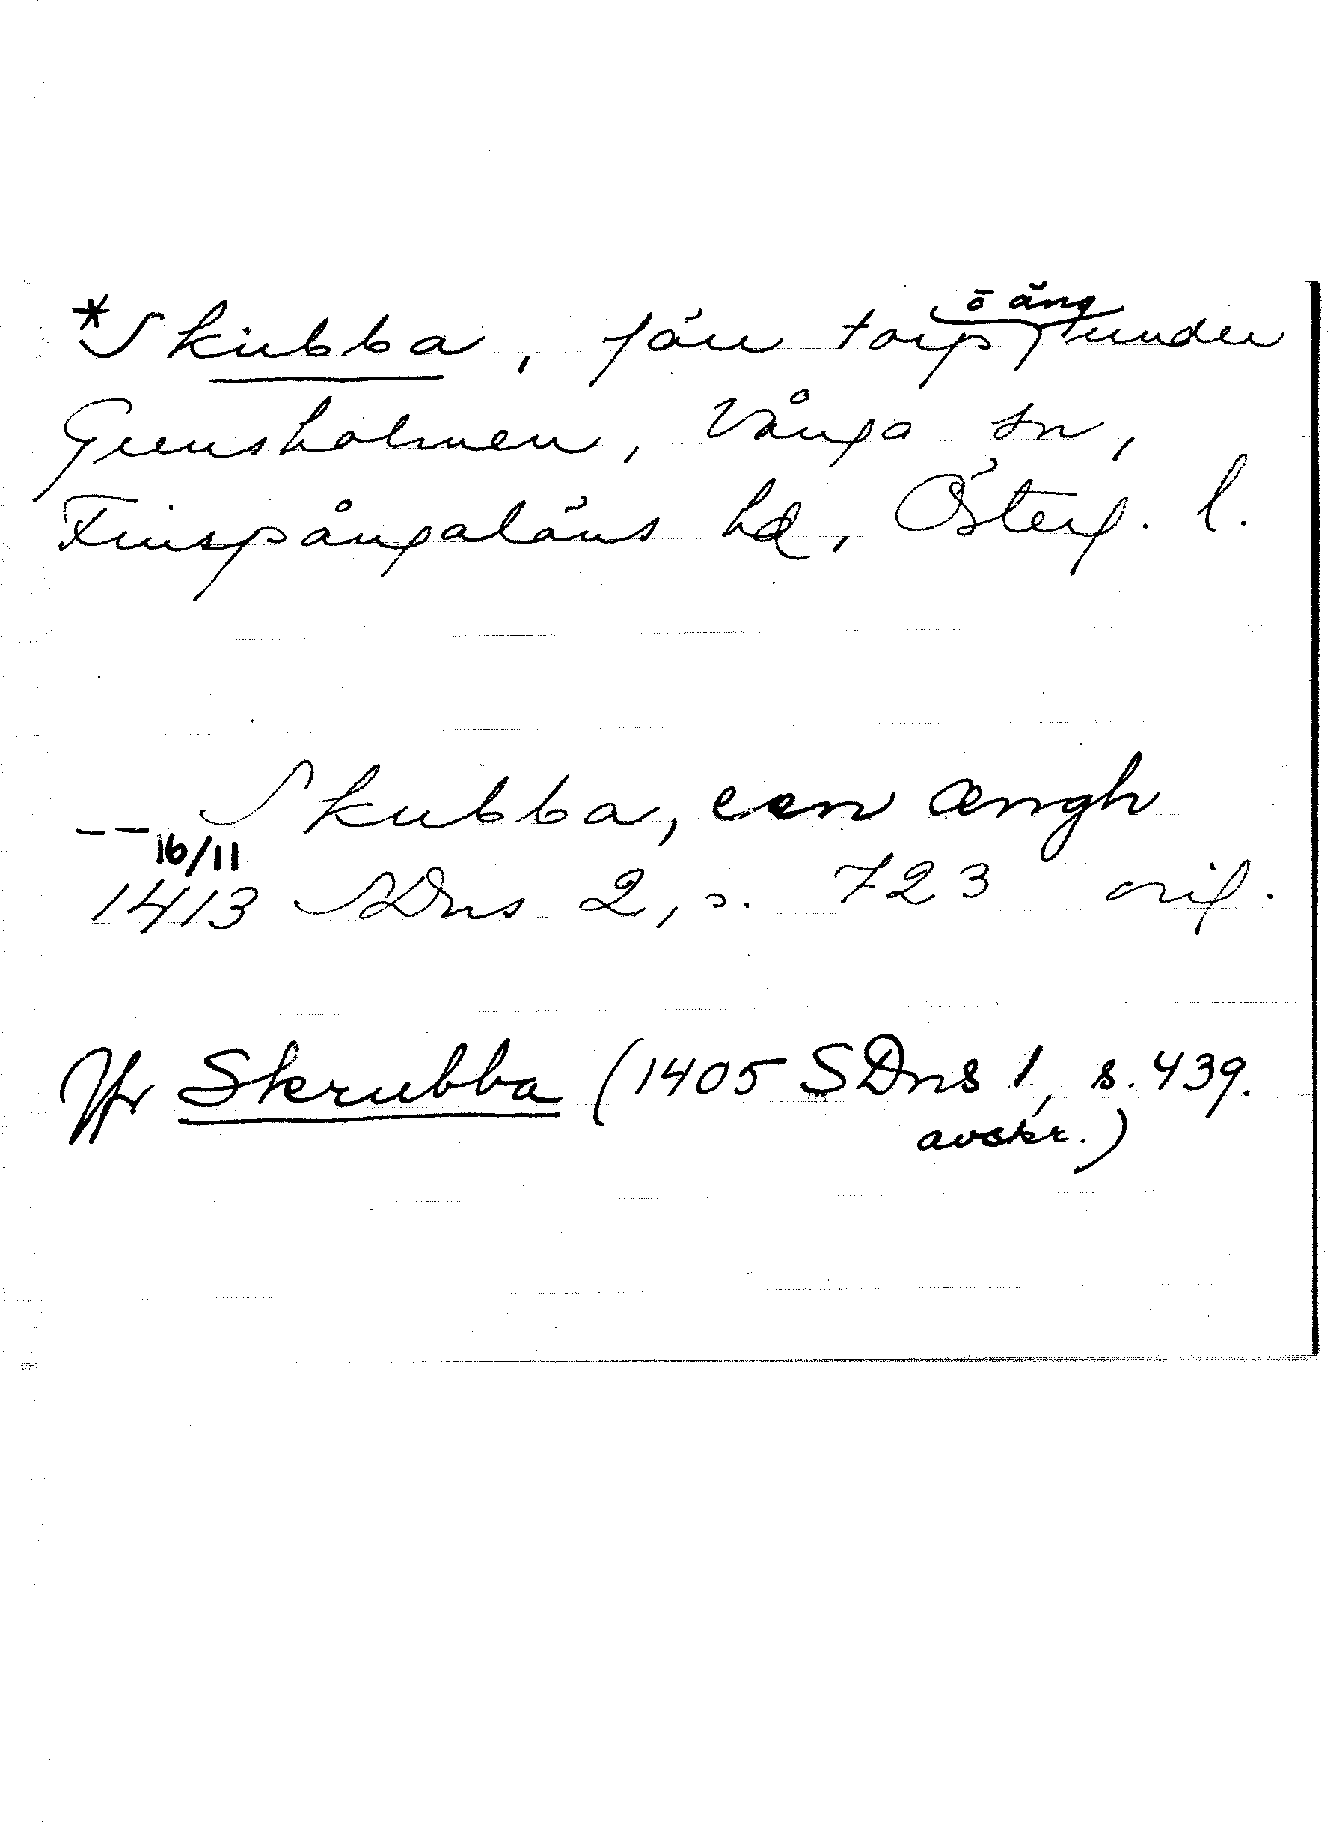 *Skubba, förr torp o äng under
Grensholmen, Vånga sn,
Finspångaläns hd, Österg. l.
-- Skubba, een ængh
16/11
1413 SDns 2, s. 723 orig.
Jfr Skrubba (1405 SDns 1, s. 439.
avskr.)